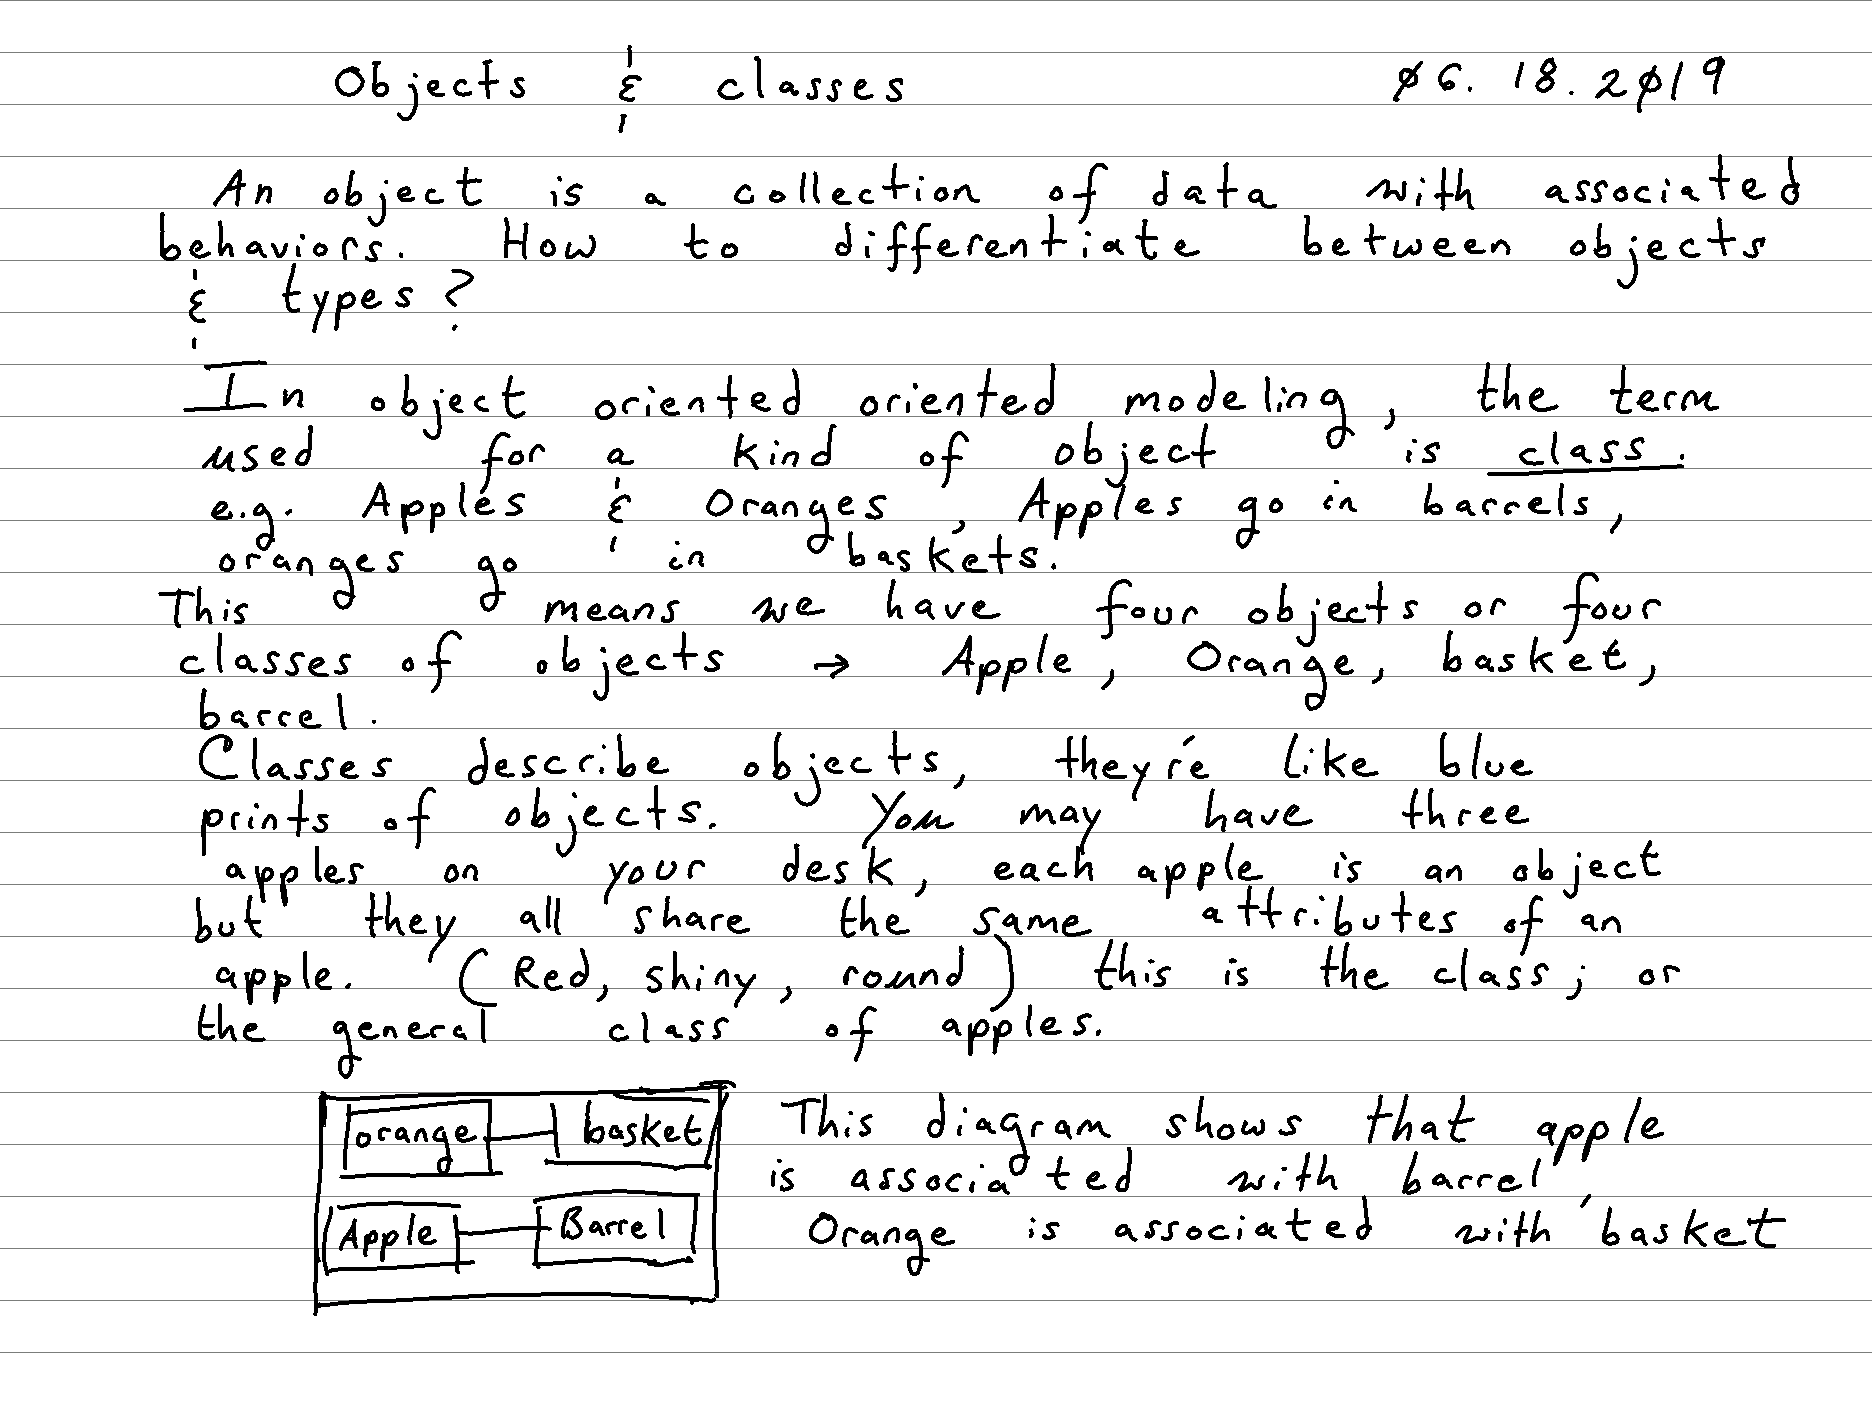 Objects & classes 06.18.2019
An object is a collection of data with associated
behaviors. How to differentiate between objects
& types?
In object oriented oriented modeling, the term
used for a kind of object is class.
e.g. Apples & Oranges, Apples go in barrels,
oranges go in baskets.
This means we have four objects or four
classes of objects → Apple, Orange, basket,
barrel.
Classes describe objects, they're like blue
prints of objects. You may have three
apples on your desk, each apple is an object
but they all share the same attributes of an
apple. (Red, shiny, round) this is the class; or
the general class of apples.
orange basket
Apple Barrel
This diagram shows that apple
is associated with barrel,
Orange is associated with basket